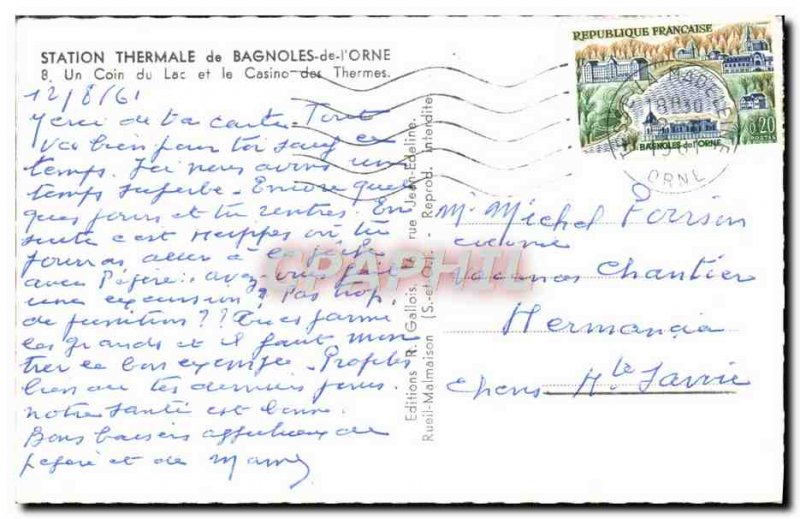 STATION THERMALE de BAGNOLES-de-l'ORNE
8. Un Coin du Lac et le Casino des Thermes.
12/8/61
Merci de ta carte. Tout
va bien pour toi sauf ce
temps. Ici nous avons un
temps superbe. Encore quel
ques jours et tu rentres. En
suite c'est où tu
pourras aller à la pêche
avec Pépère. avez-vous fait
une excursion? Pas trop
de punitions?? Tu es parmi
les grands et il faut mon
trer le bon exemple. Profites
bien de tes derniers jours.
notre santé est bonne.
Bons baisers affectueux de
pépère et de
Editions R. Gallois, rue Jean-Edeline.
Rueil-Malmaison (S.-et-O.) - Reprod. interdite
REPUBLIQUE FRANÇAISE
BAGNOLES de l'ORNE
0,20
POSTES
18H30
1961
ORNE
Mr Michel
colonie
Chantier
Hermance
chens Hte Savoie
CPAPHIL